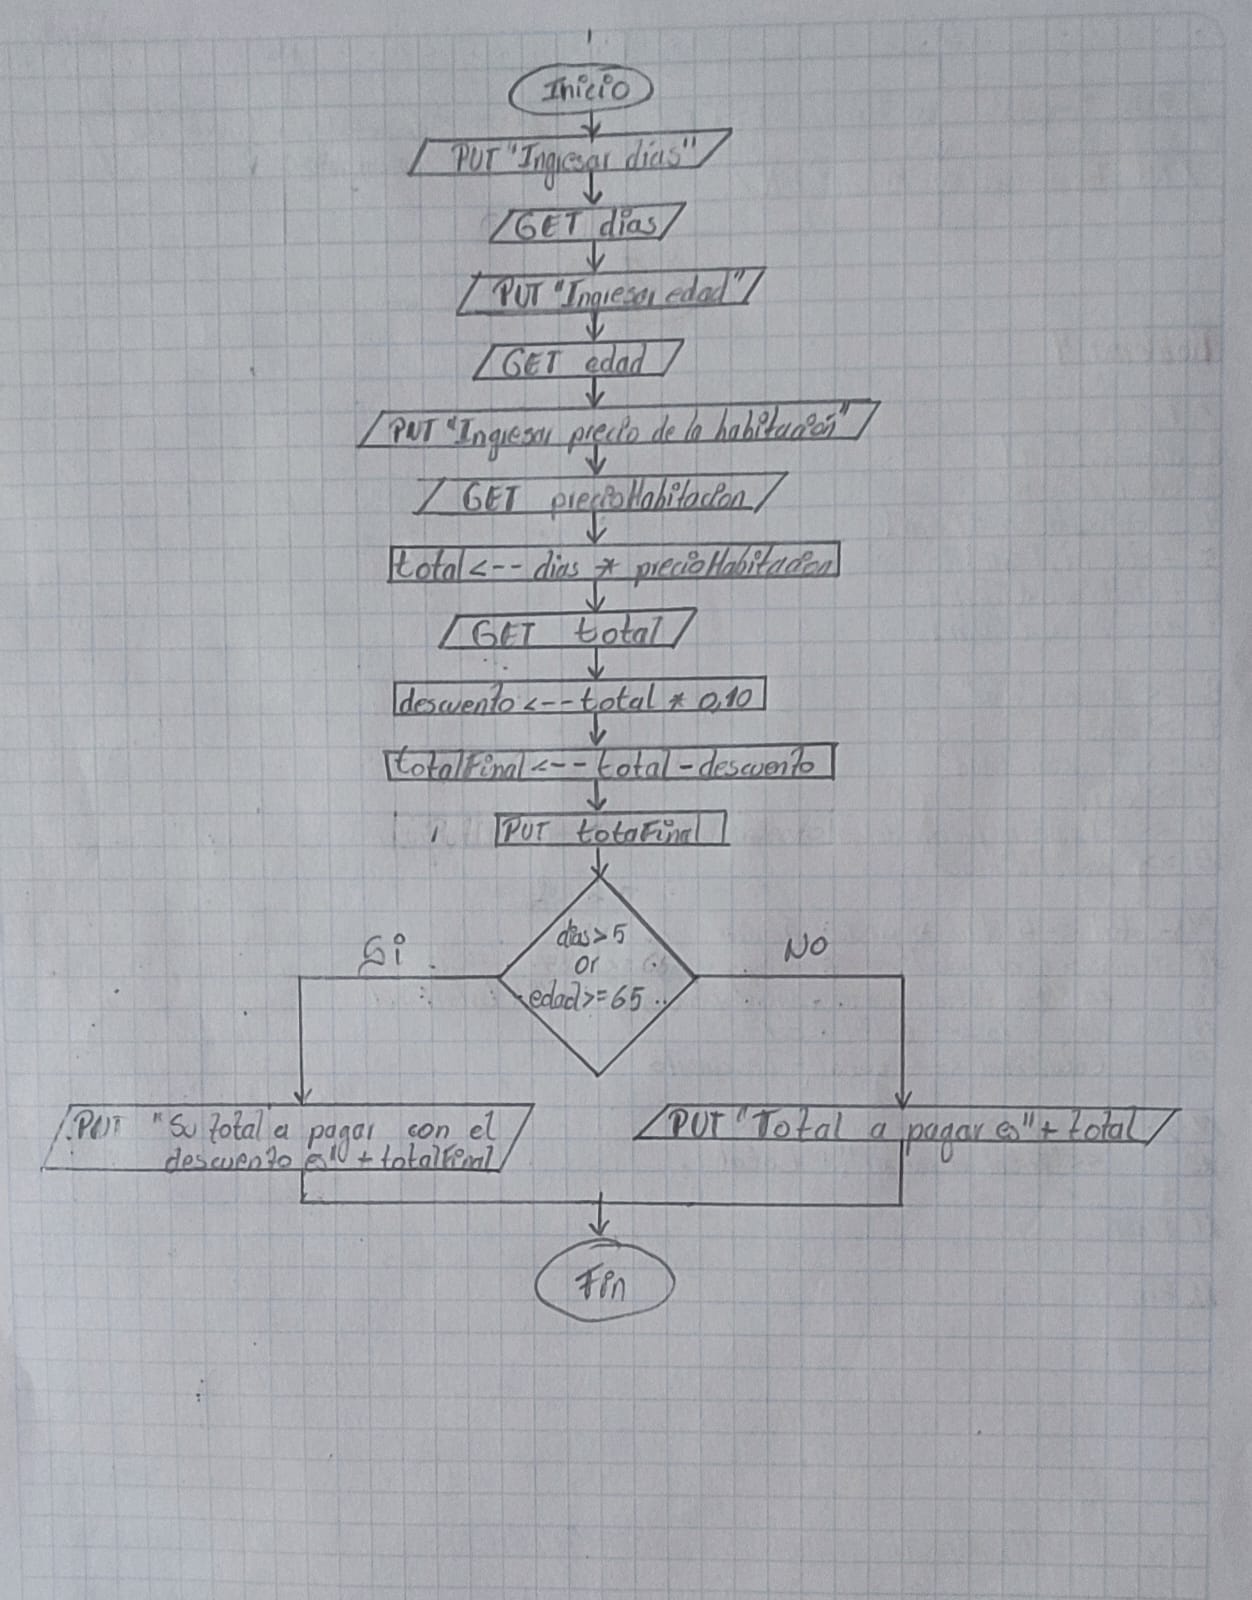 Inicio
PUT "Ingresar dias"
GET dias
PUT "Ingresar edad"
GET edad
PUT "Ingresar precio de la habitación"
GET precioHabitacion
total <-- dias * precioHabitacion
GET total
descuento <-- total * 0,10
totalFinal <-- total - descuento
PUT totaFinal
dias > 5
or
edad >= 65
Si
NO
PUT "Su total a pagar con el
descuento es" + totalFinal
PUT "Total a pagar es" + total
Fin